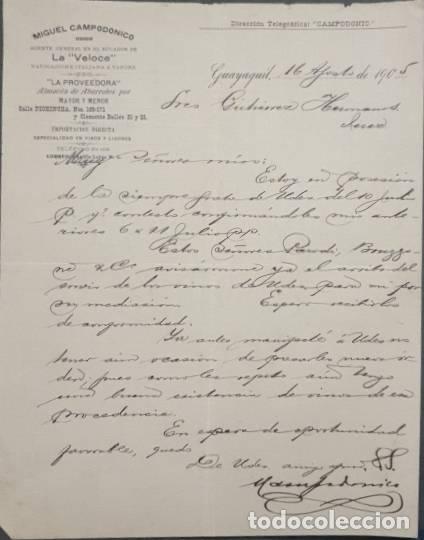 MIGUEL CAMPODONICO
AGENTE GENERAL EN EL ECUADOR DE
La "Veloce"
NAVIGAZIONE ITALIANA A VAPORE
"LA PROVEEDORA"
Almacén de Abarrotes por
MAYOR Y MENOR
Calle PICHINCHA, Nos. 169-171
y Clemente Ballén 21 y 23.
IMPORTACION DIRECTA
ESPECIALIDAD EN VINOS Y LICORES
Dirección Telegráfica: "CAMPODONIO."
Guayaquil, 16 Agosto de 1905
Sres Gutiérrez Hermanos
Jerez
Muy Señores mios:
Estoy en posesión
de la siempre grata de Udes del 10 Julio
pp. y contesto confirmándoles mis ante-
riores 6 & 11 Julio pp.
Estos Señores Parodi, Brugge
& Ca. avisáronme ya el arribo del
envío de los vinos de Udes para mi por
su mediación. Espero recibirlos
de conformidad.
Ya antes manifesté á Udes no
tener aún ocasión de pasarles nueva ór-
den, pues como les repito aún tengo
una buena existencia de vinos de esa
procedencia.
En espera de oportunidad
favorable, quedo
De Udes. amigo SS.
MCampodonico
todocoleccion.net